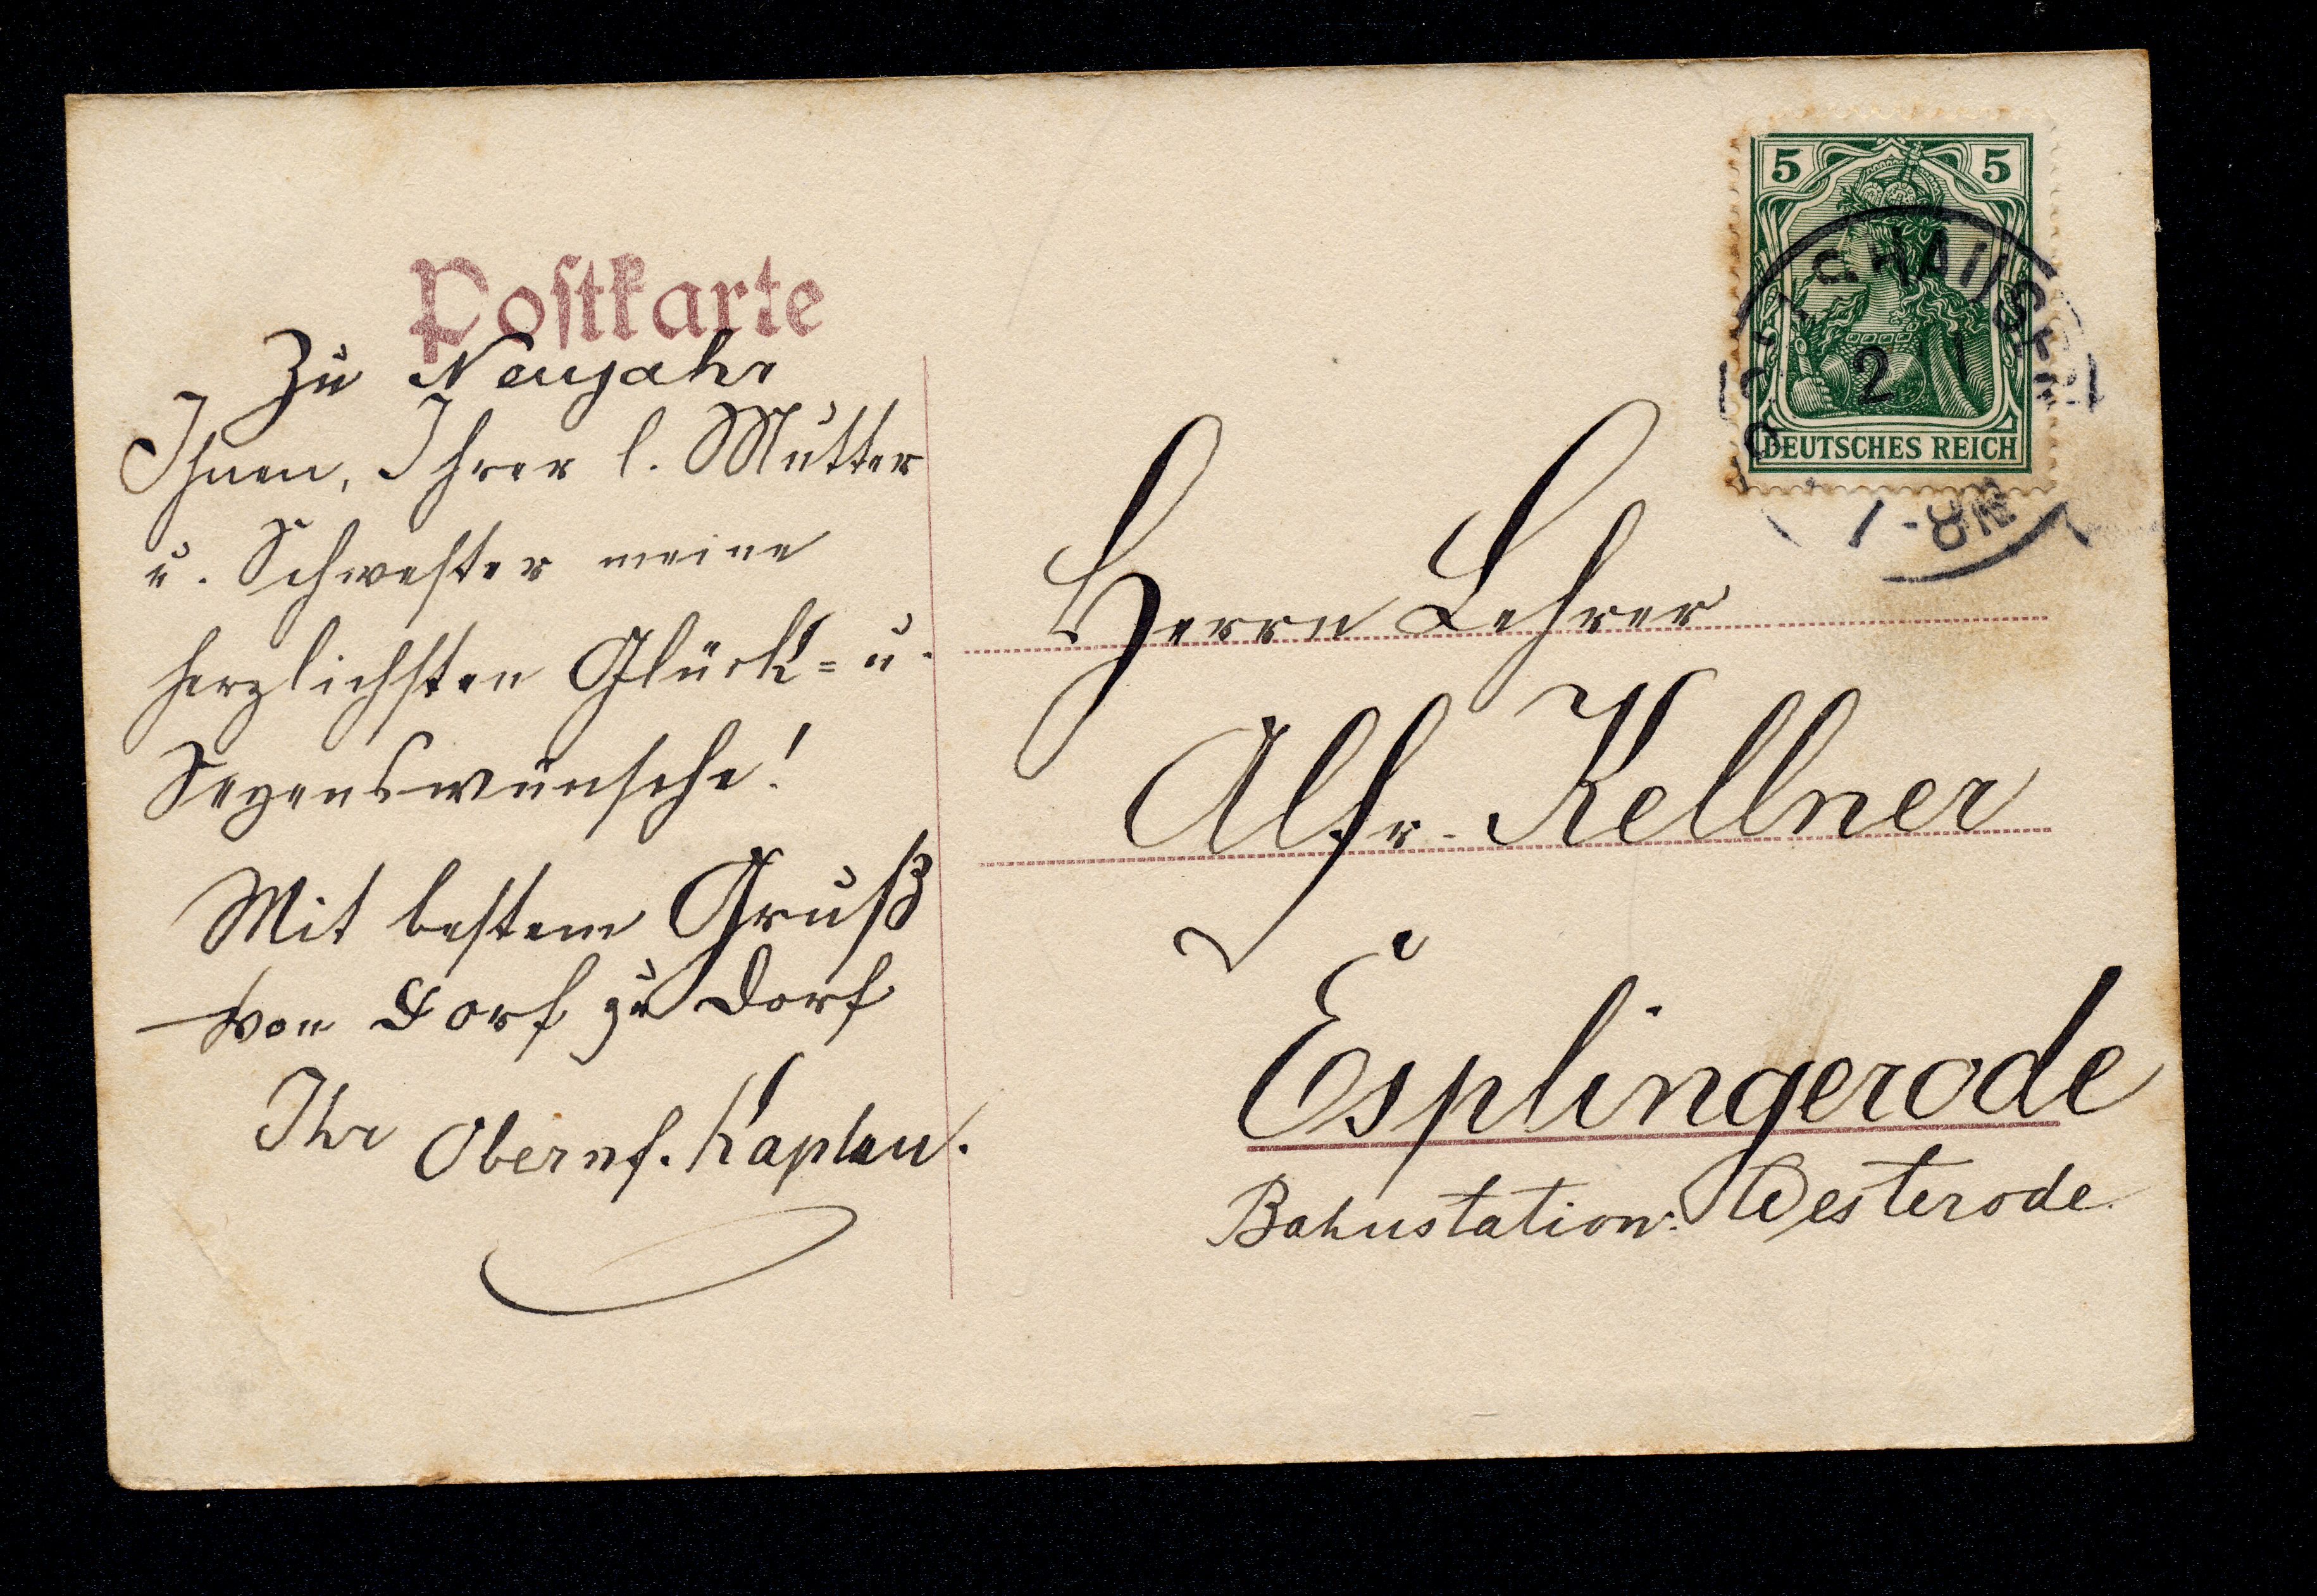 Postkarte
Zu Neujahr
Ihnen, Ihrer l. Mutter
u. Schwester meine
herzlichsten Glück- u.
Segenswünsche!
Mit bestem Gruß
von Dorf zu Dorf
Ihr Obernf. Kaplan.
5 5
DEUTSCHES REICH
2 1
7-8 N
Herrn Lehrer
Alfr. Kellner
Esplingerode
Bahnstation: Westerode